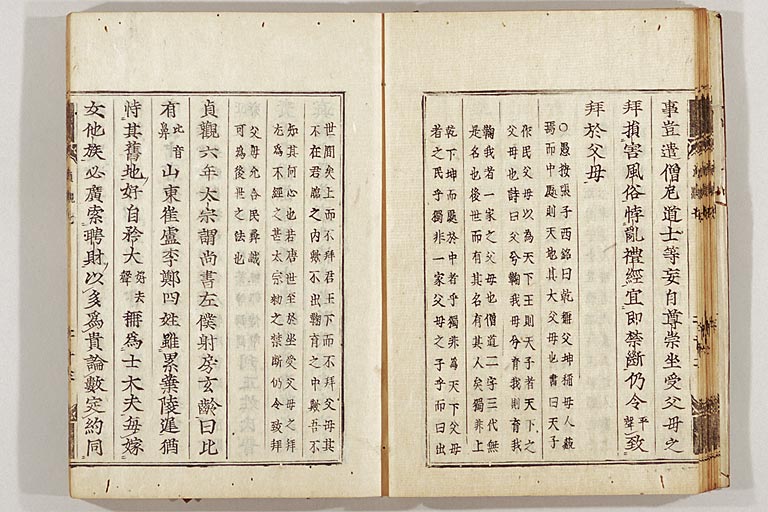 事豈遣僧尼道士等妄自尊崇坐受父母之
拜損害風俗悖亂禮經宜即禁斷仍令平聲致
拜於父母
○愚按張子西銘曰乾稱父坤稱母人藐
焉而中處則天地其大父母也書曰天子
作民父母以為天下王則天子者天下之
父母也詩曰父兮鞠我母兮育我則育我
鞠我者一家之父母也僧道二字三代無
是名也後世而有其名有其人矣獨非上
乾下坤而處於中者乎獨非為天下父母
者之民乎獨非一家父母之子乎而曰出
世間矣上而不拜君王下而不拜父母其
不在君臨之內歟不出鞠育之中歟吾不
知其何心也若唐世至於坐受父母之拜
尤為不經之甚太宗勑之禁斷仍令致拜
父母允合民彞誠
可為後世之法也
貞觀六年太宗謂尚書左僕射房玄齡曰比
有比音鼻山東崔盧李鄭四姓雖累葉陵遲猶
恃其舊地好自矜大好去聲稱為士大夫每嫁
女他族必廣索聘財以多為貴論數定約同